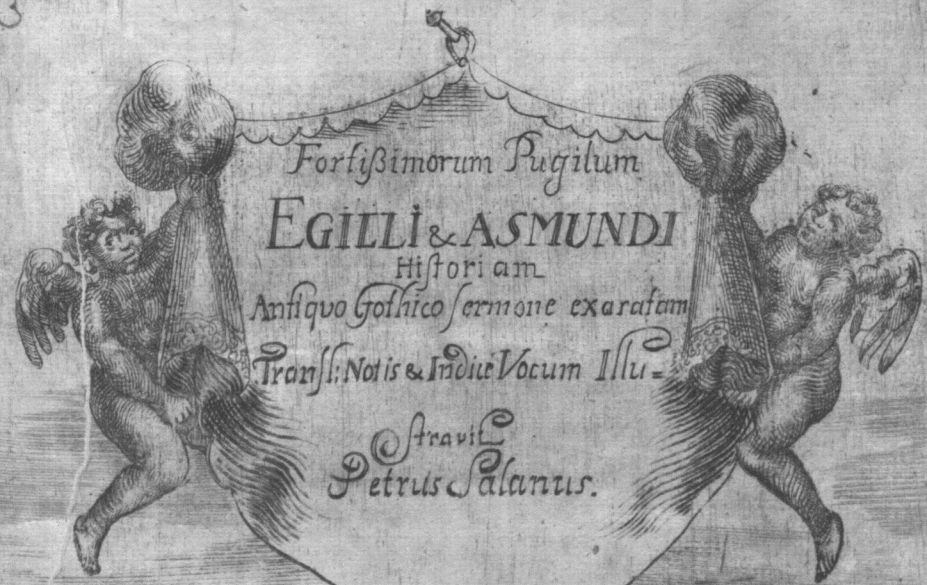 Fortißimorum Pugilum
EGILLI & ASMUNDI
Hiſtoriam
Antiquo Gothico ſermone exaratam
Tranſl: Notis & Indice Vocum Illu=
ſtravit
Petrus Salanus.